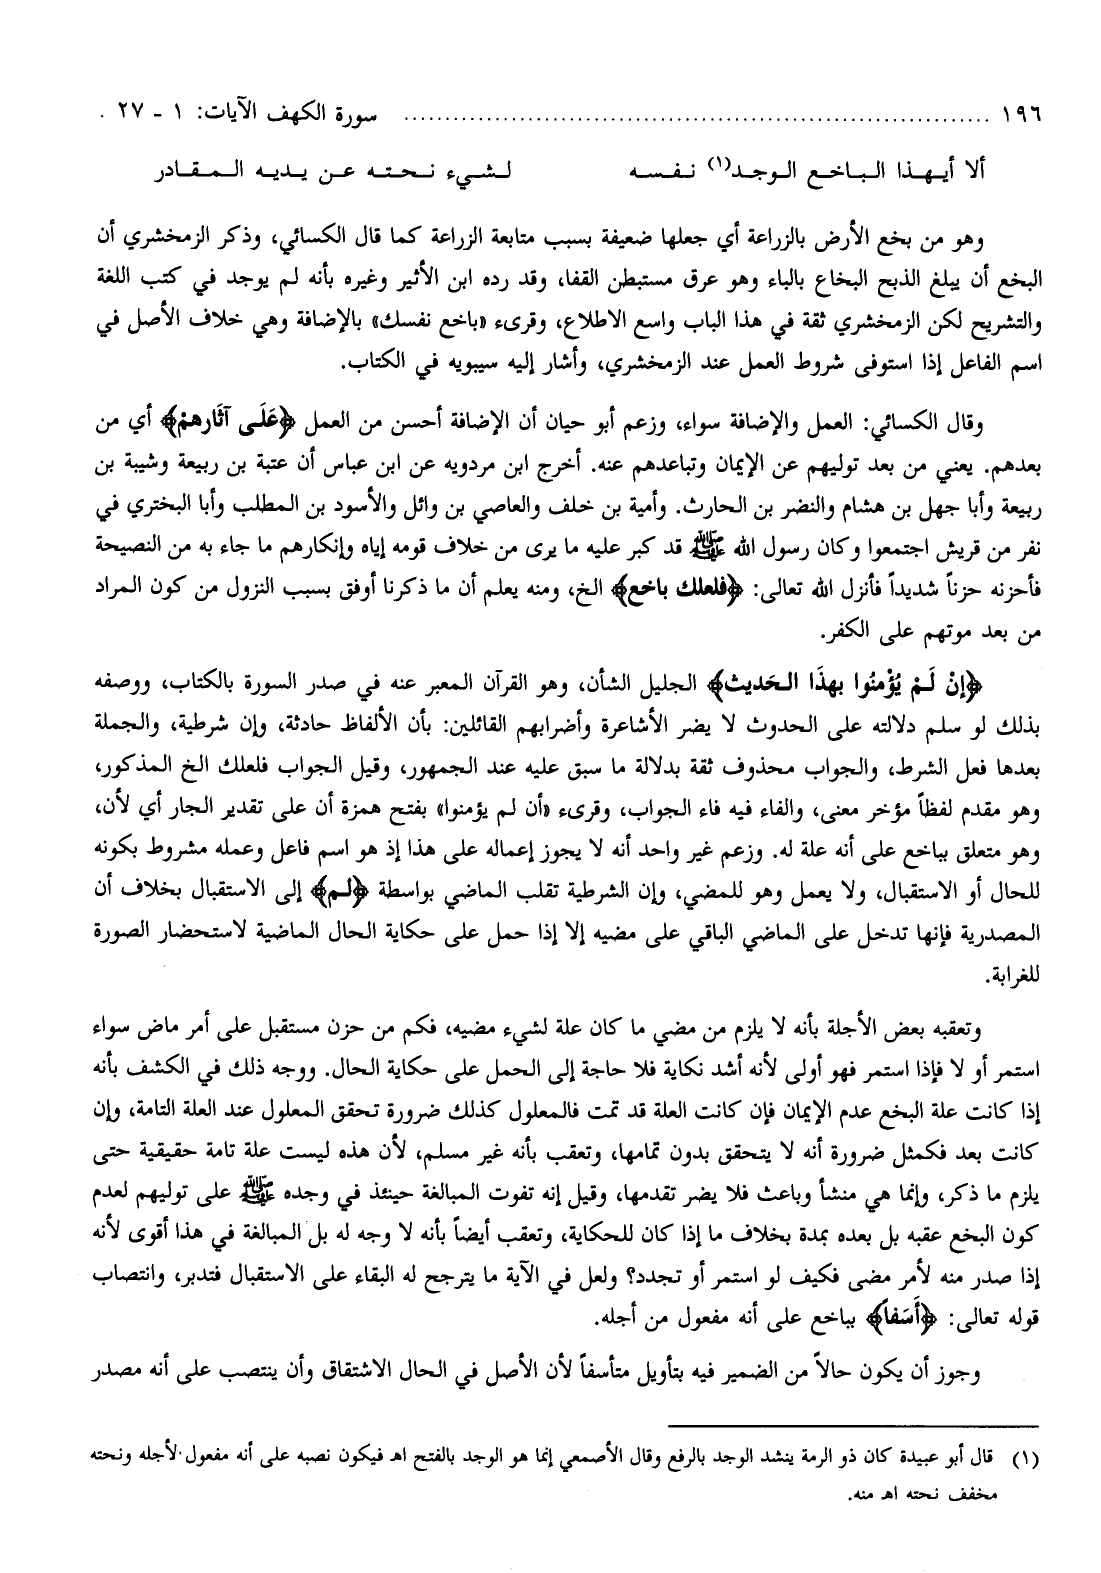 ١٩٦ ........................................................................ سورة الكهف الآيات: ١ - ٢٧ .
ألا أيـهـذا الـبـاخـع الـوجـد(١) نـفـسـه لـشـيء نـحـتـه عـن يـديـه الـمـقـادر
وهو من بخع الأرض بالزراعة أي جعلها ضعيفة بسبب متابعة الزراعة كما قال الكسائي، وذكر الزمخشري أن
البخع أن يبلغ الذبح البخاع بالباء وهو عرق مستبطن القفا، وقد رده ابن الأثير وغيره بأنه لم يوجد في كتب اللغة
والتشريح لكن الزمخشري ثقة في هذا الباب واسع الاطلاع، وقرىء «باخع نفسك» بالإضافة وهي خلاف الأصل في
اسم الفاعل إذا استوفى شروط العمل عند الزمخشري، وأشار إليه سيبويه في الكتاب.
وقال الكسائي: العمل والإضافة سواء، وزعم أبو حيان أن الإضافة أحسن من العمل ﴿عَلَى آثَارهمْ﴾ أي من
بعدهم. يعني من بعد توليهم عن الإيمان وتباعدهم عنه. أخرج ابن مردويه عن ابن عباس أن عتبة بن ربيعة وشيبة بن
ربيعة وأبا جهل بن هشام والنضر بن الحارث. وأمية بن خلف والعاصي بن وائل والأسود بن المطلب وأبا البختري في
نفر من قريش اجتمعوا وكان رسول الله ﷺ قد كبر عليه ما يرى من خلاف قومه إياه وإنكارهم ما جاء به من النصيحة
فأحزنه حزناً شديداً فأنزل الله تعالى: ﴿فلعلك باخع﴾ الخ، ومنه يعلم أن ما ذكرنا أوفق بسبب النزول من كون المراد
من بعد موتهم على الكفر.
﴿إنْ لَمْ يُؤْمنُوا بهذَا الـحَديث﴾ الجليل الشأن، وهو القرآن المعبر عنه في صدر السورة بالكتاب، ووصفه
بذلك لو سلم دلالته على الحدوث لا يضر الأشاعرة وأضرابهم القائلين: بأن الألفاظ حادثة، وإن شرطية، والجملة
بعدها فعل الشرط، والجواب محذوف ثقة بدلالة ما سبق عليه عند الجمهور، وقيل الجواب فلعلك الخ المذكور،
وهو مقدم لفظاً مؤخر معنى، والفاء فيه فاء الجواب، وقرىء «أن لم يؤمنوا» بفتح همزة أن على تقدير الجار أي لأن،
وهو متعلق بباخع على أنه علة له. وزعم غير واحد أنه لا يجوز إعماله على هذا إذ هو اسم فاعل وعمله مشروط بكونه
للحال أو الاستقبال، ولا يعمل وهو للمضي، وإن الشرطية تقلب الماضي بواسطة ﴿لـم﴾ إلى الاستقبال بخلاف أن
المصدرية فإنها تدخل على الماضي الباقي على مضيه إلا إذا حمل على حكاية الحال الماضية لاستحضار الصورة
للغرابة.
وتعقبه بعض الأجلة بأنه لا يلزم من مضي ما كان علة لشيء مضيه، فكم من حزن مستقبل على أمر ماض سواء
استمر أو لا فإذا استمر فهو أولى لأنه أشد نكاية فلا حاجة إلى الحمل على حكاية الحال. ووجه ذلك في الكشف بأنه
إذا كانت علة البخع عدم الإيمان فإن كانت العلة قد تمت فالمعلول كذلك ضرورة تحقق المعلول عند العلة التامة، وإن
كانت بعد فكمثل ضرورة أنه لا يتحقق بدون تمامها، وتعقب بأنه غير مسلم، لأن هذه ليست علة تامة حقيقية حتى
يلزم ما ذكر، وإنما هي منشأ وباعث فلا يضر تقدمها، وقيل إنه تفوت المبالغة حينئذ في وجده ﷺ على توليهم لعدم
كون البخع عقبه بل بعده بمدة بخلاف ما إذا كان للحكاية، وتعقب أيضاً بأنه لا وجه له بل المبالغة في هذا أقوى لأنه
إذا صدر منه لأمر مضى فكيف لو استمر أو تجدد؟ ولعل في الآية ما يترجح له البقاء على الاستقبال فتدبر، وانتصاب
قوله تعالى: ﴿أَسَفاً﴾ بباخع على أنه مفعول من أجله.
وجوز أن يكون حالاً من الضمير فيه بتأويل متأسفاً لأن الأصل في الحال الاشتقاق وأن ينتصب على أنه مصدر
(١) قال أبو عبيدة كان ذو الرمة ينشد الوجد بالرفع وقال الأصمعي إنما هو الوجد بالفتح اهـ فيكون نصبه على أنه مفعول لأجله ونحته
مخفف نحته اهـ منه.